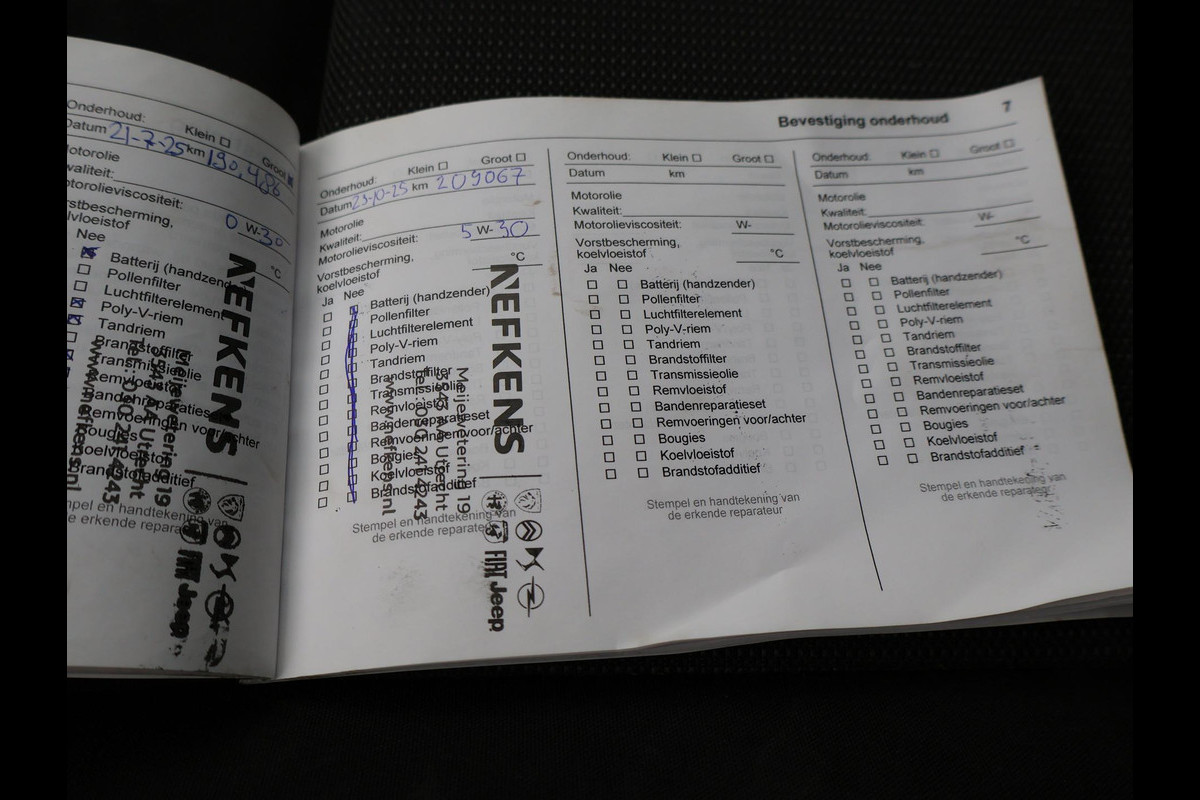 Onderhoud: Klein
Groot
Datum 21-7-25 km 190,486
Motorolie
Kwaliteit:
Motorolieviscositeit:
0 W-30
Vorstbescherming,
koelvloeistof
°C
Nee
Batterij (handzender)
Pollenfilter
Luchtfilterelement
Poly-V-riem
Tandriem
Brandstoffilter
Transmissieolie
Remvloeistof
Bandenreparatieset
Remvoeringen voor/achter
Bougies
Koelvloeistof
Brandstofadditief
Stempel en handtekening van
de erkende reparateur
NEFKENS
Meijewetering 19
3543 AA Utrecht
Tel: 030 241 4243
www.nefkens.nl
FIAT Jeep
Bevestiging onderhoud 7
Onderhoud: Klein Groot
Datum 23-10-25 km 209067
Motorolie
Kwaliteit:
Motorolieviscositeit: 5 W-30
Vorstbescherming,
koelvloeistof °C
Ja Nee
Batterij (handzender)
Pollenfilter
Luchtfilterelement
Poly-V-riem
Tandriem
Brandstoffilter
Transmissieolie
Remvloeistof
Bandenreparatieset
Remvoeringen voor/achter
Bougies
Koelvloeistof
Brandstofadditief
Stempel en handtekening van
de erkende reparateur
NEFKENS
Meijewetering 19
3543 AA Utrecht
Tel: 030 241 4243
www.nefkens.nl
FIAT Jeep
Onderhoud: Klein Groot
Datum km
Motorolie
Kwaliteit:
Motorolieviscositeit: W-
Vorstbescherming,
koelvloeistof °C
Ja Nee
Batterij (handzender)
Pollenfilter
Luchtfilterelement
Poly-V-riem
Tandriem
Brandstoffilter
Transmissieolie
Remvloeistof
Bandenreparatieset
Remvoeringen voor/achter
Bougies
Koelvloeistof
Brandstofadditief
Stempel en handtekening van
de erkende reparateur
Onderhoud: Klein Groot
Datum km
Motorolie
Kwaliteit:
Motorolieviscositeit: W-
Vorstbescherming,
koelvloeistof °C
Ja Nee
Batterij (handzender)
Pollenfilter
Luchtfilterelement
Poly-V-riem
Tandriem
Brandstoffilter
Transmissieolie
Remvloeistof
Bandenreparatieset
Remvoeringen voor/achter
Bougies
Koelvloeistof
Brandstofadditief
Stempel en handtekening van
de erkende reparateur